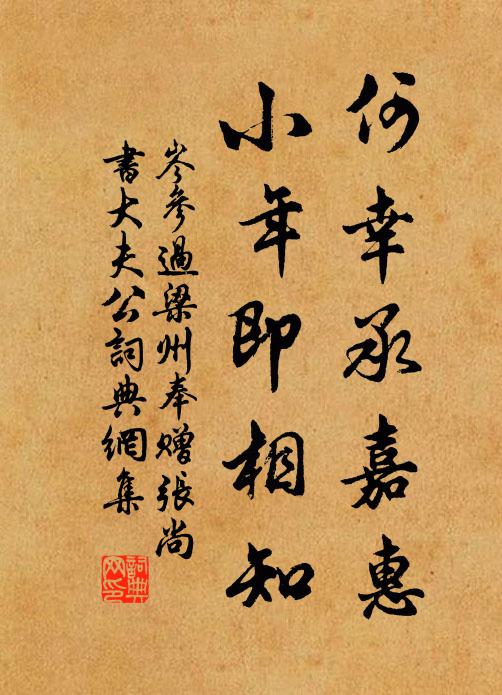 何幸承嘉惠
小年即相知
岑參過梁州奉贈張尚
書大夫公詞典網集
詞典网印